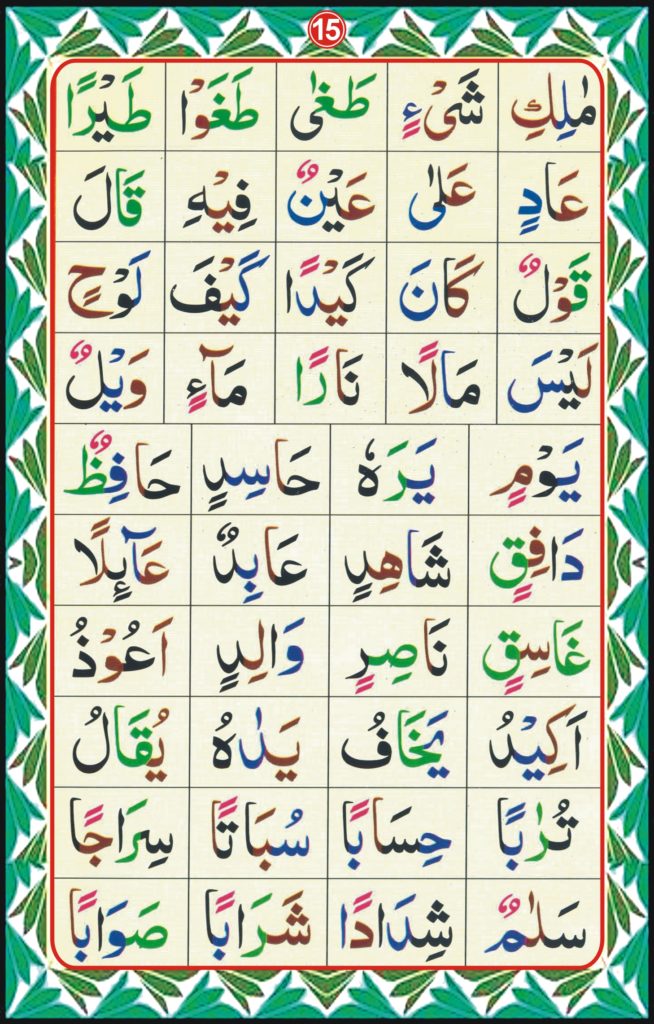 15
مٰلِكِ شَیْءٍ طَغٰی طَغَوْا طَيْرًا
عَادٍ عَلٰی عَيْنٌ فِيْهِ قَالَ
قَوْلٌ كَانَ كَيْدًا كَيْفَ لَوْحٍ
لَيْسَ مَالًا نَارًا مَآءٍ وَيْلٌ
يَوْمٍ يَرَهٗ حَاسِدٍ حَافِظٌ
دَافِقٍ شَاهِدٍ عَابِدٌ عَآئِلًا
غَاسِقٍ نَاصِرٍ وَالِدٍ اَعُوْذُ
اَكِيْدُ يَخَافُ يَدٰهُ يُقَالُ
تُرٰبًا حِسَابًا سُبَاتًا سِرَاجًا
سَلٰمٌ شِدَادًا شَرَابًا صَوَابًا